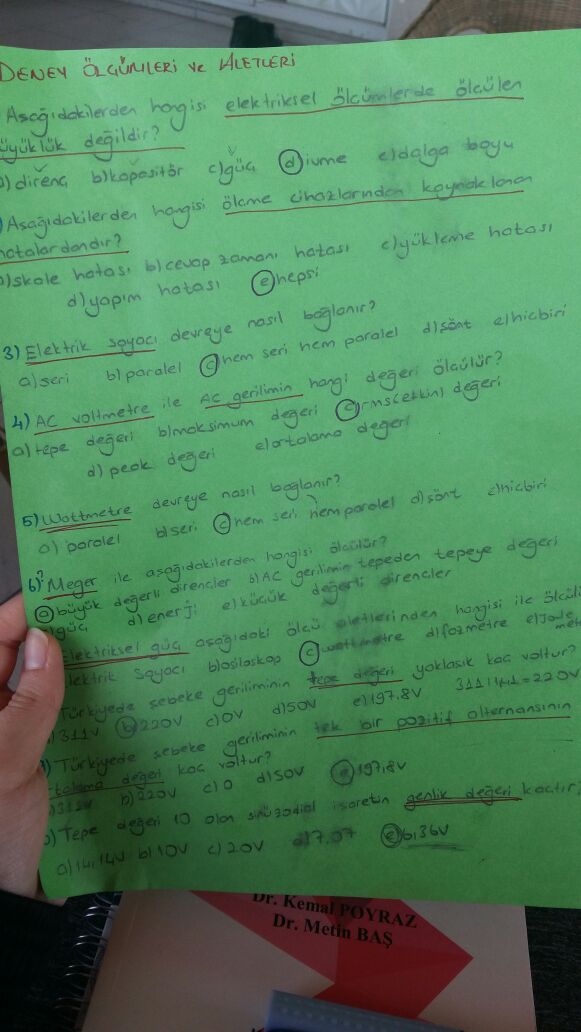 DENEY ÖLÇÜMLERİ ve ALETLERİ
Aşağıdakilerden hangisi elektriksel ölçümlerde ölçülen
büyüklük değildir?
a) direnç b) kapasitör c) güç d) ivme e) dalga boyu
) Aşağıdakilerden hangisi ölçme cihazlarından kaynaklanan
hatalardandır?
a) skale hatası b) cevap zamanı hatası c) yükleme hatası
d) yapım hatası e) hepsi
3) Elektrik sayacı devreye nasıl bağlanır?
a) seri b) paralel c) hem seri hem paralel d) şönt e) hiçbiri
4) AC voltmetre ile AC gerilimin hangi değeri ölçülür?
a) tepe değeri b) maksimum değeri c) rms(etkin) değeri
d) peak değeri e) ortalama değeri
5) Wattmetre devreye nasıl bağlanır?
a) paralel b) seri c) hem seri hem paralel d) şönt e) hiçbiri
6) Meger ile aşağıdakilerden hangisi ölçülür?
a) büyük değerli dirençler b) AC gerilimin tepeden tepeye değeri
c) güç d) enerji e) küçük değerli dirençler
Elektriksel güç aşağıdaki ölçü aletlerinden hangisi ile ölçülü
elektrik sayacı b) osilaskop c) wattmetre d) fazmetre e) Joule
metre
Türkiyede şebeke geriliminin tepe değeri yaklaşık kaç voltur?
) 311V b) 220V c) 0V d) 50V e) 197.8V 311/1,41=220V
) Türkiyede şebeke geriliminin tek bir pozitif alternansının
ortalama değeri kaç voltur?
) 311V b) 220V c) 0 d) 50V e) 197,8V
) Tepe değeri 10 olan sinüzodial işaretin genlik değeri kaçtır?
a) 14,14V b) 10V c) 20V d) 7.07 e) 6,36V
Dr. Kemal POYRAZ
Dr. Metin BAŞ